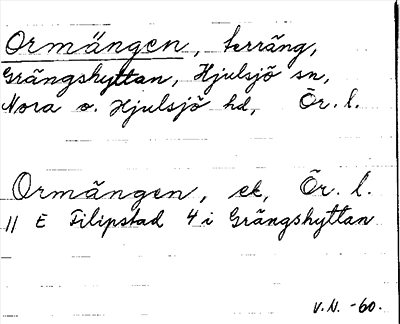 Ormängen, terräng,
Grängshyttan, Hjulsjö sn,
Nora o. Hjulsjö hd, Ör. l.
Ormängen, ek, Ör. l.
11 E Filipstad 4 i Grängshyttan
V.N. -60.